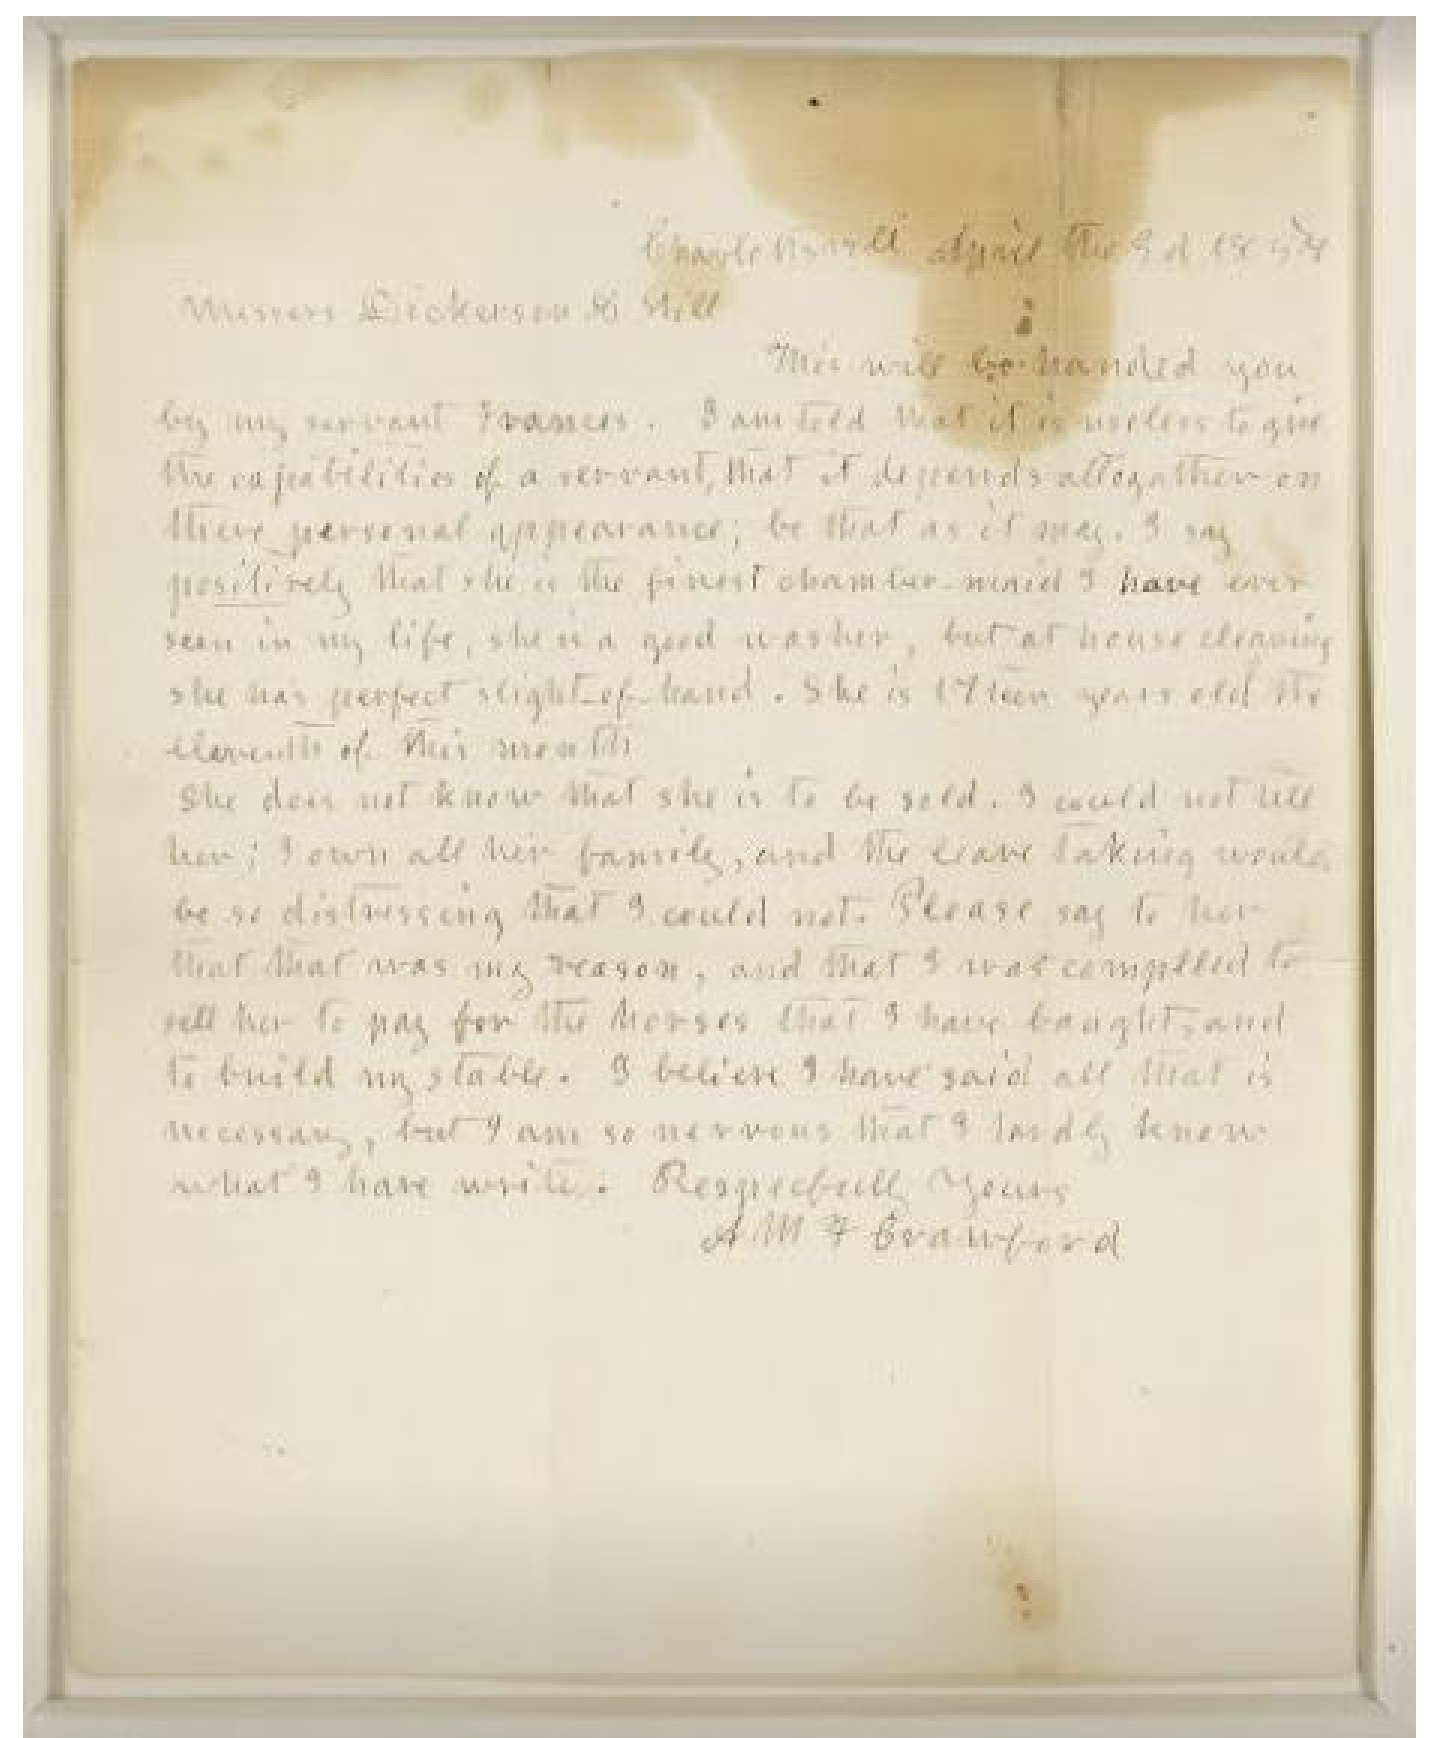 April the 3d
Messers Dickerson & Hill
This will be handed you
by my servant Frances. I am told that it is useless to give
the capabilities of a servant, that it depends altogather on
there personal appearance; be that as it may. I say
positively that she is the finest chamber-maid I have ever
seen in my life, she is a good washer, but at house cleaning
she has perfect slight-of-hand. She is 17teen years old the
eleventh of this month
She does not know that she is to be sold. I could not tell
her; I own all her family, and the leave taking would
be so distressing that I could not. Please say to her
that that was my reason, and that I was complled to
sell her to pay for the horses that I have bought, and
to build my stable. I believe I have said all that is
necessary, but I am so nervous that I hardly know
what I have write. Respectfully Yours
A M F Crawford